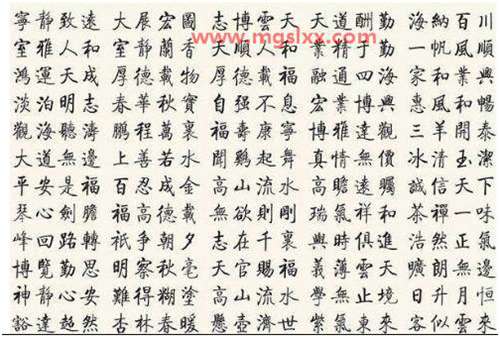 寧靜致遠 大展宏圖 志博雲天 天道酬勤 海納百川
www.mgslxx.com
室雅人和 室靜蘭香 大順人和 業精于勤 一帆風順
鴻運天成 厚德載物 厚德載福 融通四海 家和業興
淡泊明志 春華秋實 自强不息 宏業博興 惠風和暢
觀海聽濤 鵬程萬裏 福壽康寧 博雅達觀 三羊開泰
大道無邊 上善若水 聞鷄起舞 真情無價 冰清玉潔
平安是福 百忍成金 高山流水 高瞻遠矚 誠信天下
琴心劍膽 福高德載 無欲則剛 瑞氣祥和 茶禪一味
峰回路轉 祇争朝夕 志在千裏 與時俱進 浩然正氣
博覽勤思 明察秋毫 天官賜福 義薄雲天 曠朗無邊
神静心安 難得糊塗 高山流水 學無止境 日升月恒
豁達超然 杏林春暖 懸壺濟世 紫氣東來 客似雲來